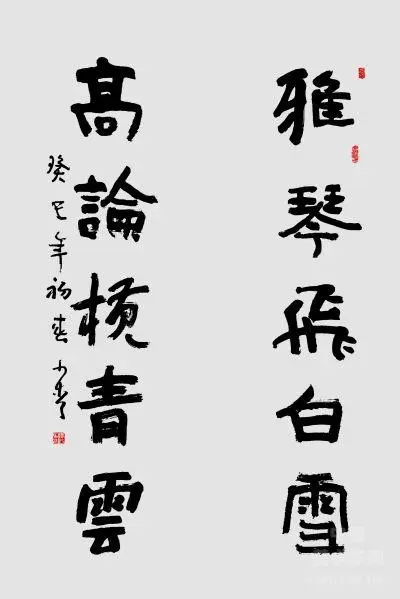 雅琴飛白雪
高論横青雲
癸巳年初春